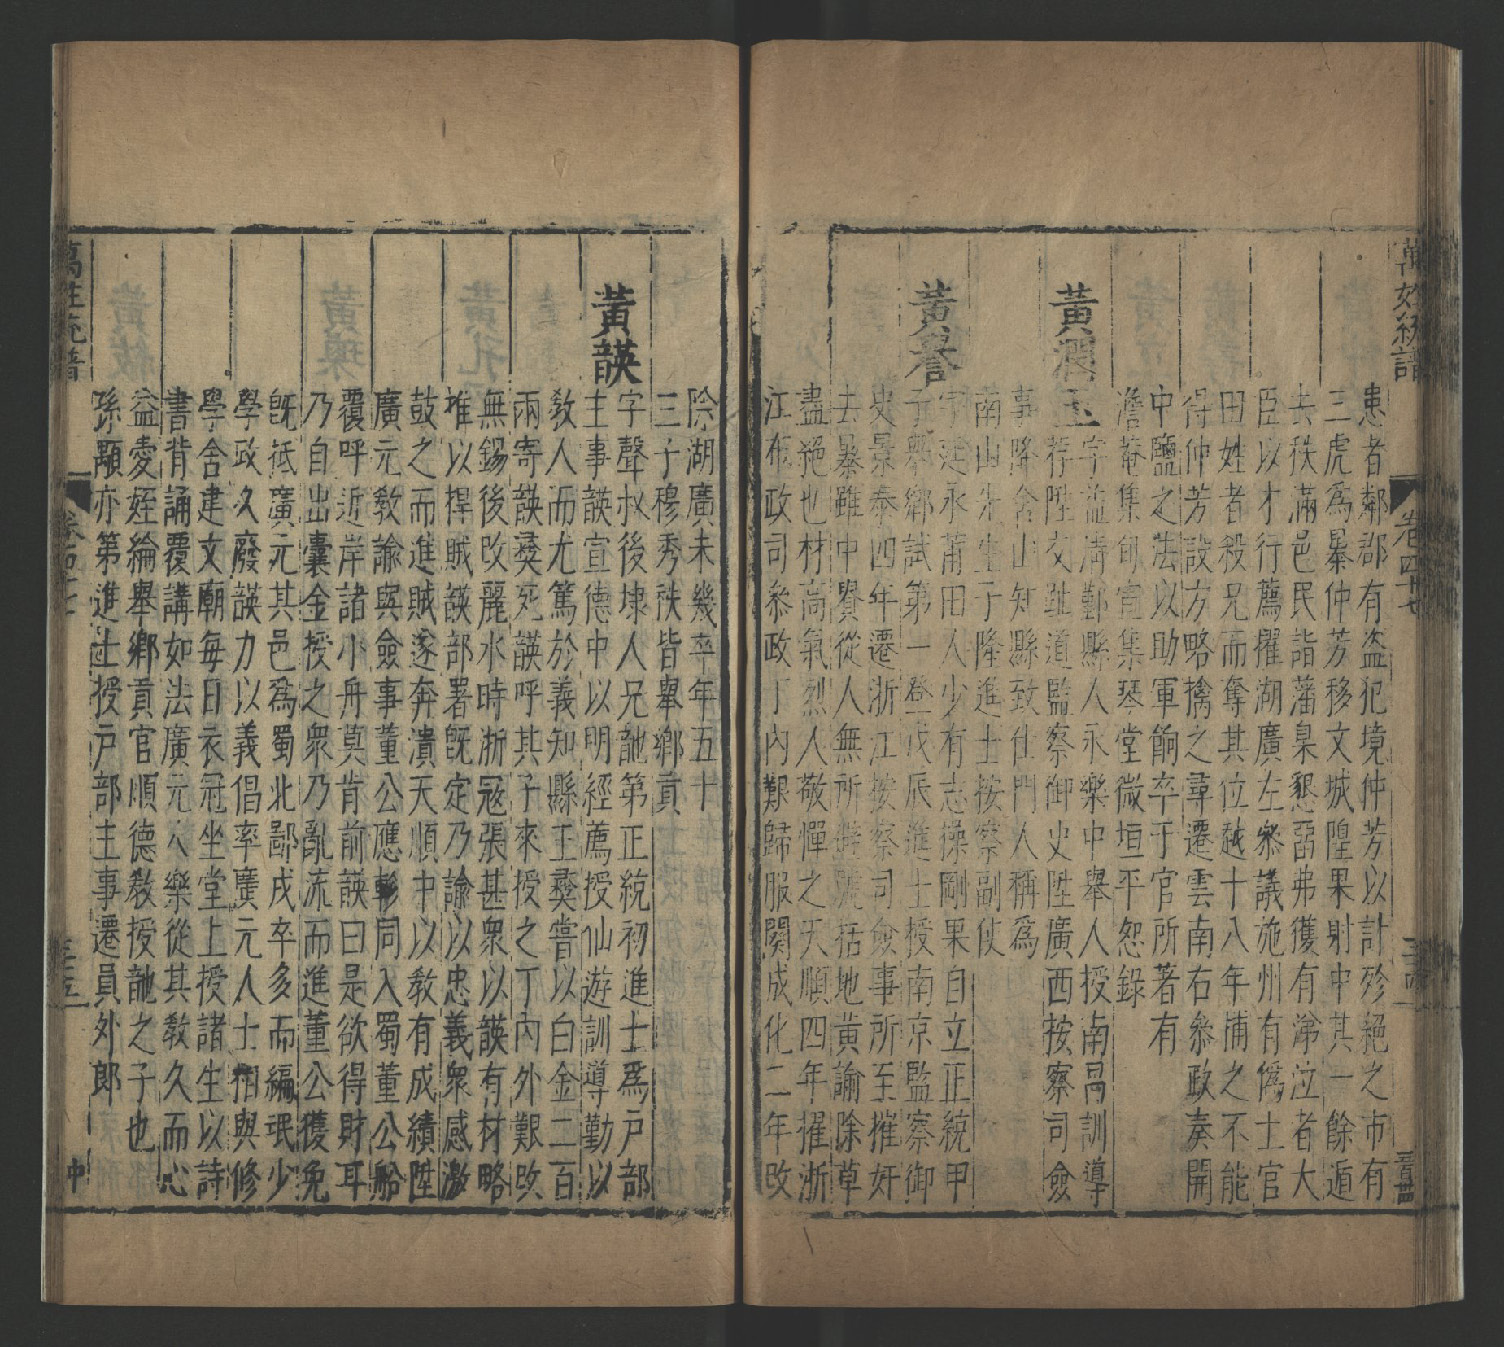 萬姓統譜
卷四十七
患者鄰郡有盜犯境仲芳以計殄絕之市有
三虎爲暴仲芳移文城隍果射中其一餘遁
去秩滿邑民詣藩臬懇罶弗獲有涕泣者大
臣以才行薦擢湖廣左叅議施州有僞土官
田姓者殺兄而奪其位越十八年捕之不能
得仲芳設方略擒之尋遷雲南右叅政奏開
中鹽之法以助軍餉卒于官所著有
澹菴集旬宣集琴堂微垣平怨錄
黃潤玉字孟清鄞縣人永樂中舉人授南昌訓導
荐陞交趾道監察御史陞廣西按察司僉
事降含山知縣致仕門人稱爲
南山先生子隆進士按察副使
黃譽字廷永莆田人少有志操剛果自立正統甲
子舉鄉試第一登戊辰進士授南京監察御
史景泰四年遷浙江按察司僉事所至摧奸
去暴雖中貴從人無所
括地黃諭除草
盡絕也材高氣烈人敬憚之天順四年擢浙
江布政司叅政丁內艱歸服闋成化二年改
除湖廣未幾卒年五十
三子穆秀秩皆舉鄉貢
黃䪫字聲叔後埭人兄訑第正統初進士爲戶部
主事䪫宣德中以明經薦授仙遊訓導勤以
敎人而尤篤於義知縣王㷼嘗以白金二百
兩寄䪫㷼死䪫呼其子來授之丁內外艱改
無錫後改麗水時浙冦張甚衆以䪫有材略
推以捍賊䪫部署既定乃諭以忠義衆感激
鼓之而進賊遂奔潰天順中以敎有成績陞
廣元敎諭與僉事董公應軫同入蜀董公船
覆呼近岸諸小舟莫肯前䪫曰是欲得財耳
乃自出囊金授之衆乃亂流而進董公獲免
既抵廣元其邑爲蜀北鄙戍卒多而編珉少
學政久廢䪫力以義倡率廣元人士相與修
學舍建文廟每日衣冠坐堂上授諸生以詩
書背誦覆講如法廣元人樂從其敎久而心
益愛姪綸舉鄉貢官順德敎授訑之子也
孫顒亦第進士授戶部主事遷員外郎
萬姓統譜
卷四十七
三十五
仲